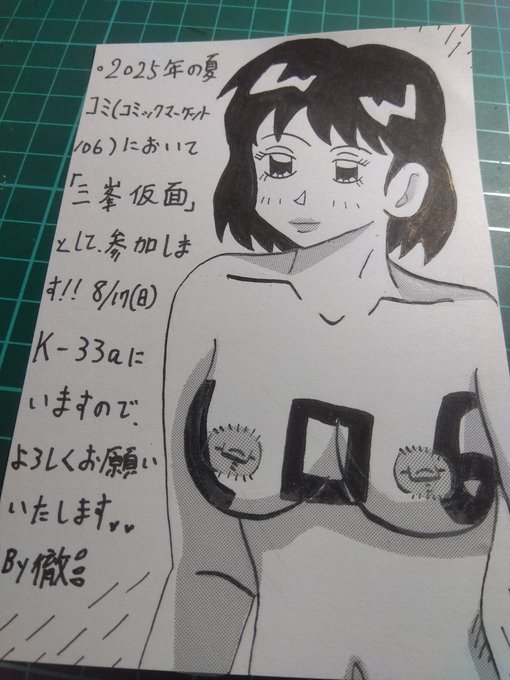 。2025年の夏
コミ(コミックマーケット
106)において
「三峯仮面」
として、参加しま
す!! 8/17(日)
K-33aに
いますので、
よろしくお願い
いたします。
By徹
106